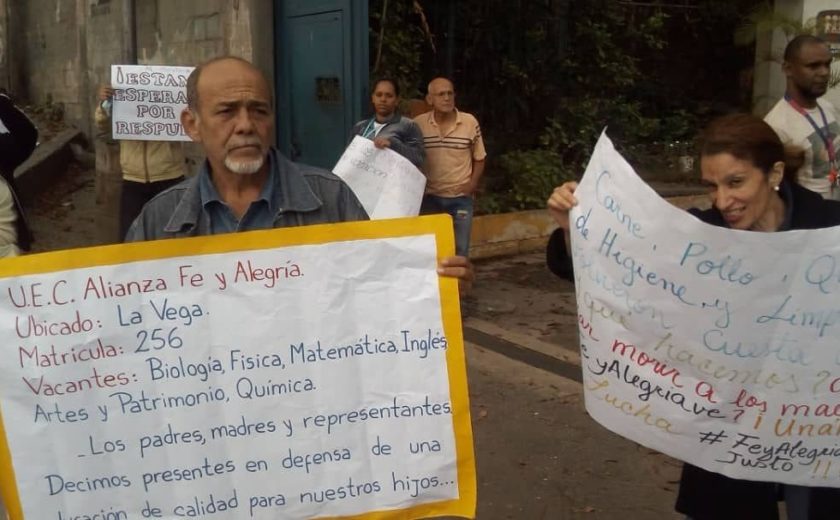 ¡ESTAM
ESPERA
POR
RESPU
U.E.C. Alianza Fe y Alegría.
Ubicado: La Vega.
Matrícula: 256
Vacantes: Biología, Física, Matemática, Inglés,
Artes y Patrimonio, Química.
- Los padres, madres y representantes
Decimos presentes en defensa de una
ucación de calidad para nuestros hijos...
Carne, Pollo, Q
de Higiene, y Limp
cuesta
que hacemos?
morir a los ma
e yAlegriaVe? ¡Una
Lucha #FeyAlegria
Justo !!